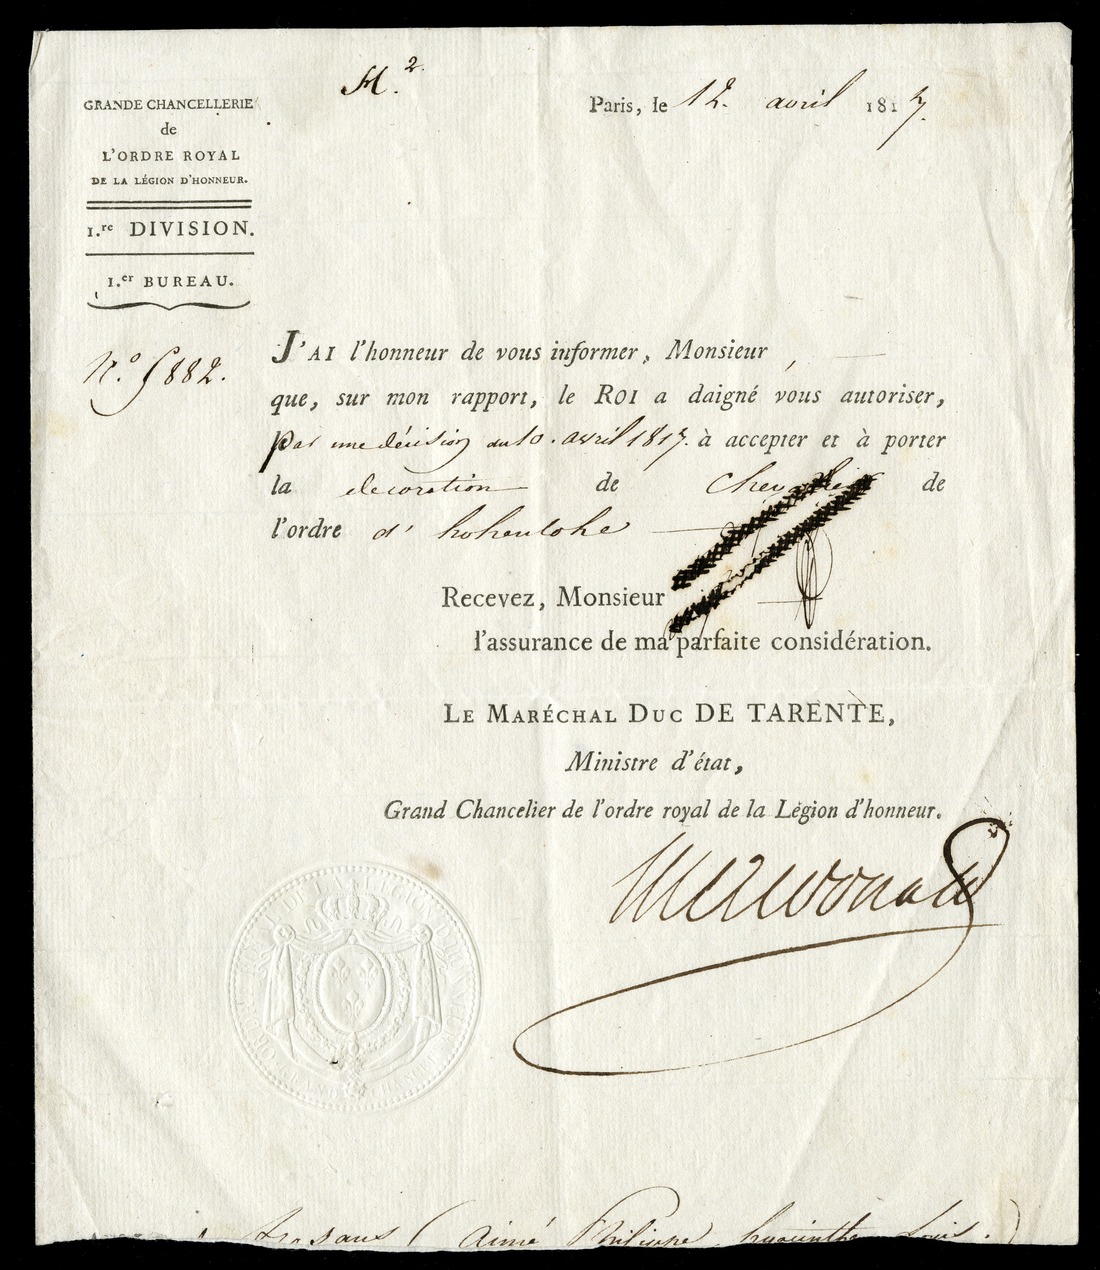 M.²
Paris, le 12. avril 1817.
GRANDE CHANCELLERIE
de
L'ORDRE ROYAL
DE LA LÉGION D'HONNEUR.
1.re DIVISION.
1.er BUREAU.
N.º 5882.
J'AI l'honneur de vous informer, Monsieur,
que, sur mon rapport, le ROI a daigné vous autoriser,
par une décision du 10. avril 1817. à accepter et à porter
la decoration de chevalier de
l'ordre d' hohenlohe
Recevez, Monsieur
l'assurance de ma parfaite considération.
LE MARÉCHAL DUC DE TARENTE,
Ministre d'état,
Grand Chancelier de l'ordre royal de la Légion d'honneur.
Macdonald
(aimé Philippe hyacinthe Louis.)